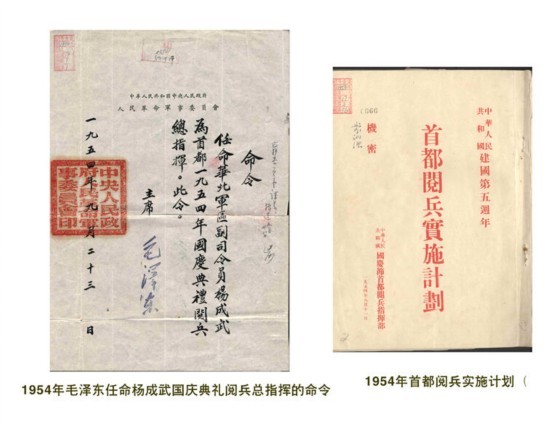 中華人民共和國中央人民政府
人民革命軍事委員會
命令
任命華北軍區副司令員楊成武
為首都一九五四年國慶典禮閱兵
總指揮。此令。
主席
毛澤东
一九五四年九月二十三日
中央人民政
府人民革命軍
事委員會印
1954年毛泽东任命杨成武国庆典礼阅兵总指挥的命令
中華人民
共和國
建國第五週年
首都閱兵實施計劃
機密
國慶節首都閱兵指揮部
1954年首都阅兵实施计划（